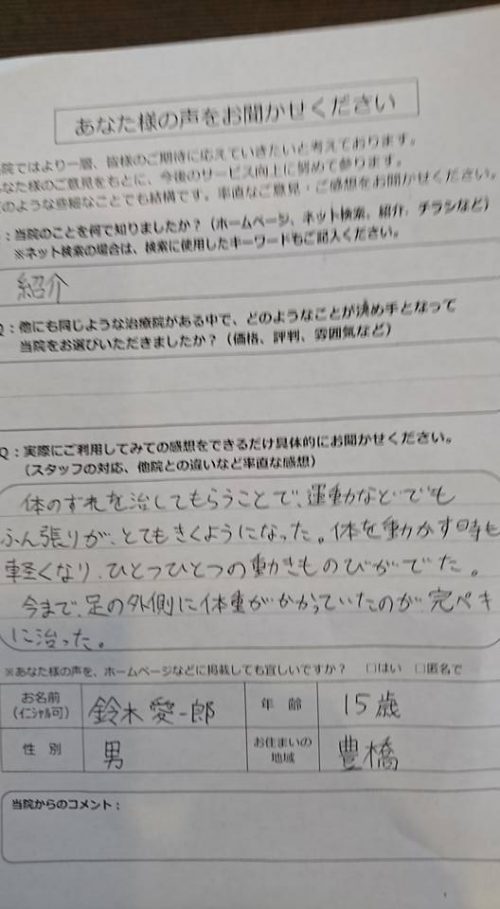 あなた様の声をお聞かせください
院ではより一層、皆様のご期待に応えていきたいと考えております。
なた様のご意見をもとに、今後のサービス向上に努めて参ります。
のような些細なことでも結構です。率直なご意見・ご感想をお聞かせください。
：当院のことを何で知りましたか？（ホームページ、ネット検索、紹介、チラシなど）
※ネット検索の場合は、検索に使用したキーワードもご記入ください。
紹介
Q：他にも同じような治療院がある中で、どのようなことが決め手となって
当院をお選びいただきましたか？（価格、評判、雰囲気など）
Q：実際にご利用してみての感想をできるだけ具体的にお聞かせください。
（スタッフの対応、他院との違いなど率直な感想）
体のずれを治してもらうことで、運動などでも
ふん張りが、とてもきくようになった。体を動かす時も
軽くなり、ひとつひとつの動きものびがでた。
今まで、足の外側に体重がかかっていたのが、完ペキ
に治った。
※あなた様の声を、ホームページなどに掲載しても宜しいですか？ □はい □匿名で
お名前
（イニシャル可）
鈴木愛一郎
年 齢
15歳
性 別
男
お住まいの
地域
豊橋
当院からのコメント：